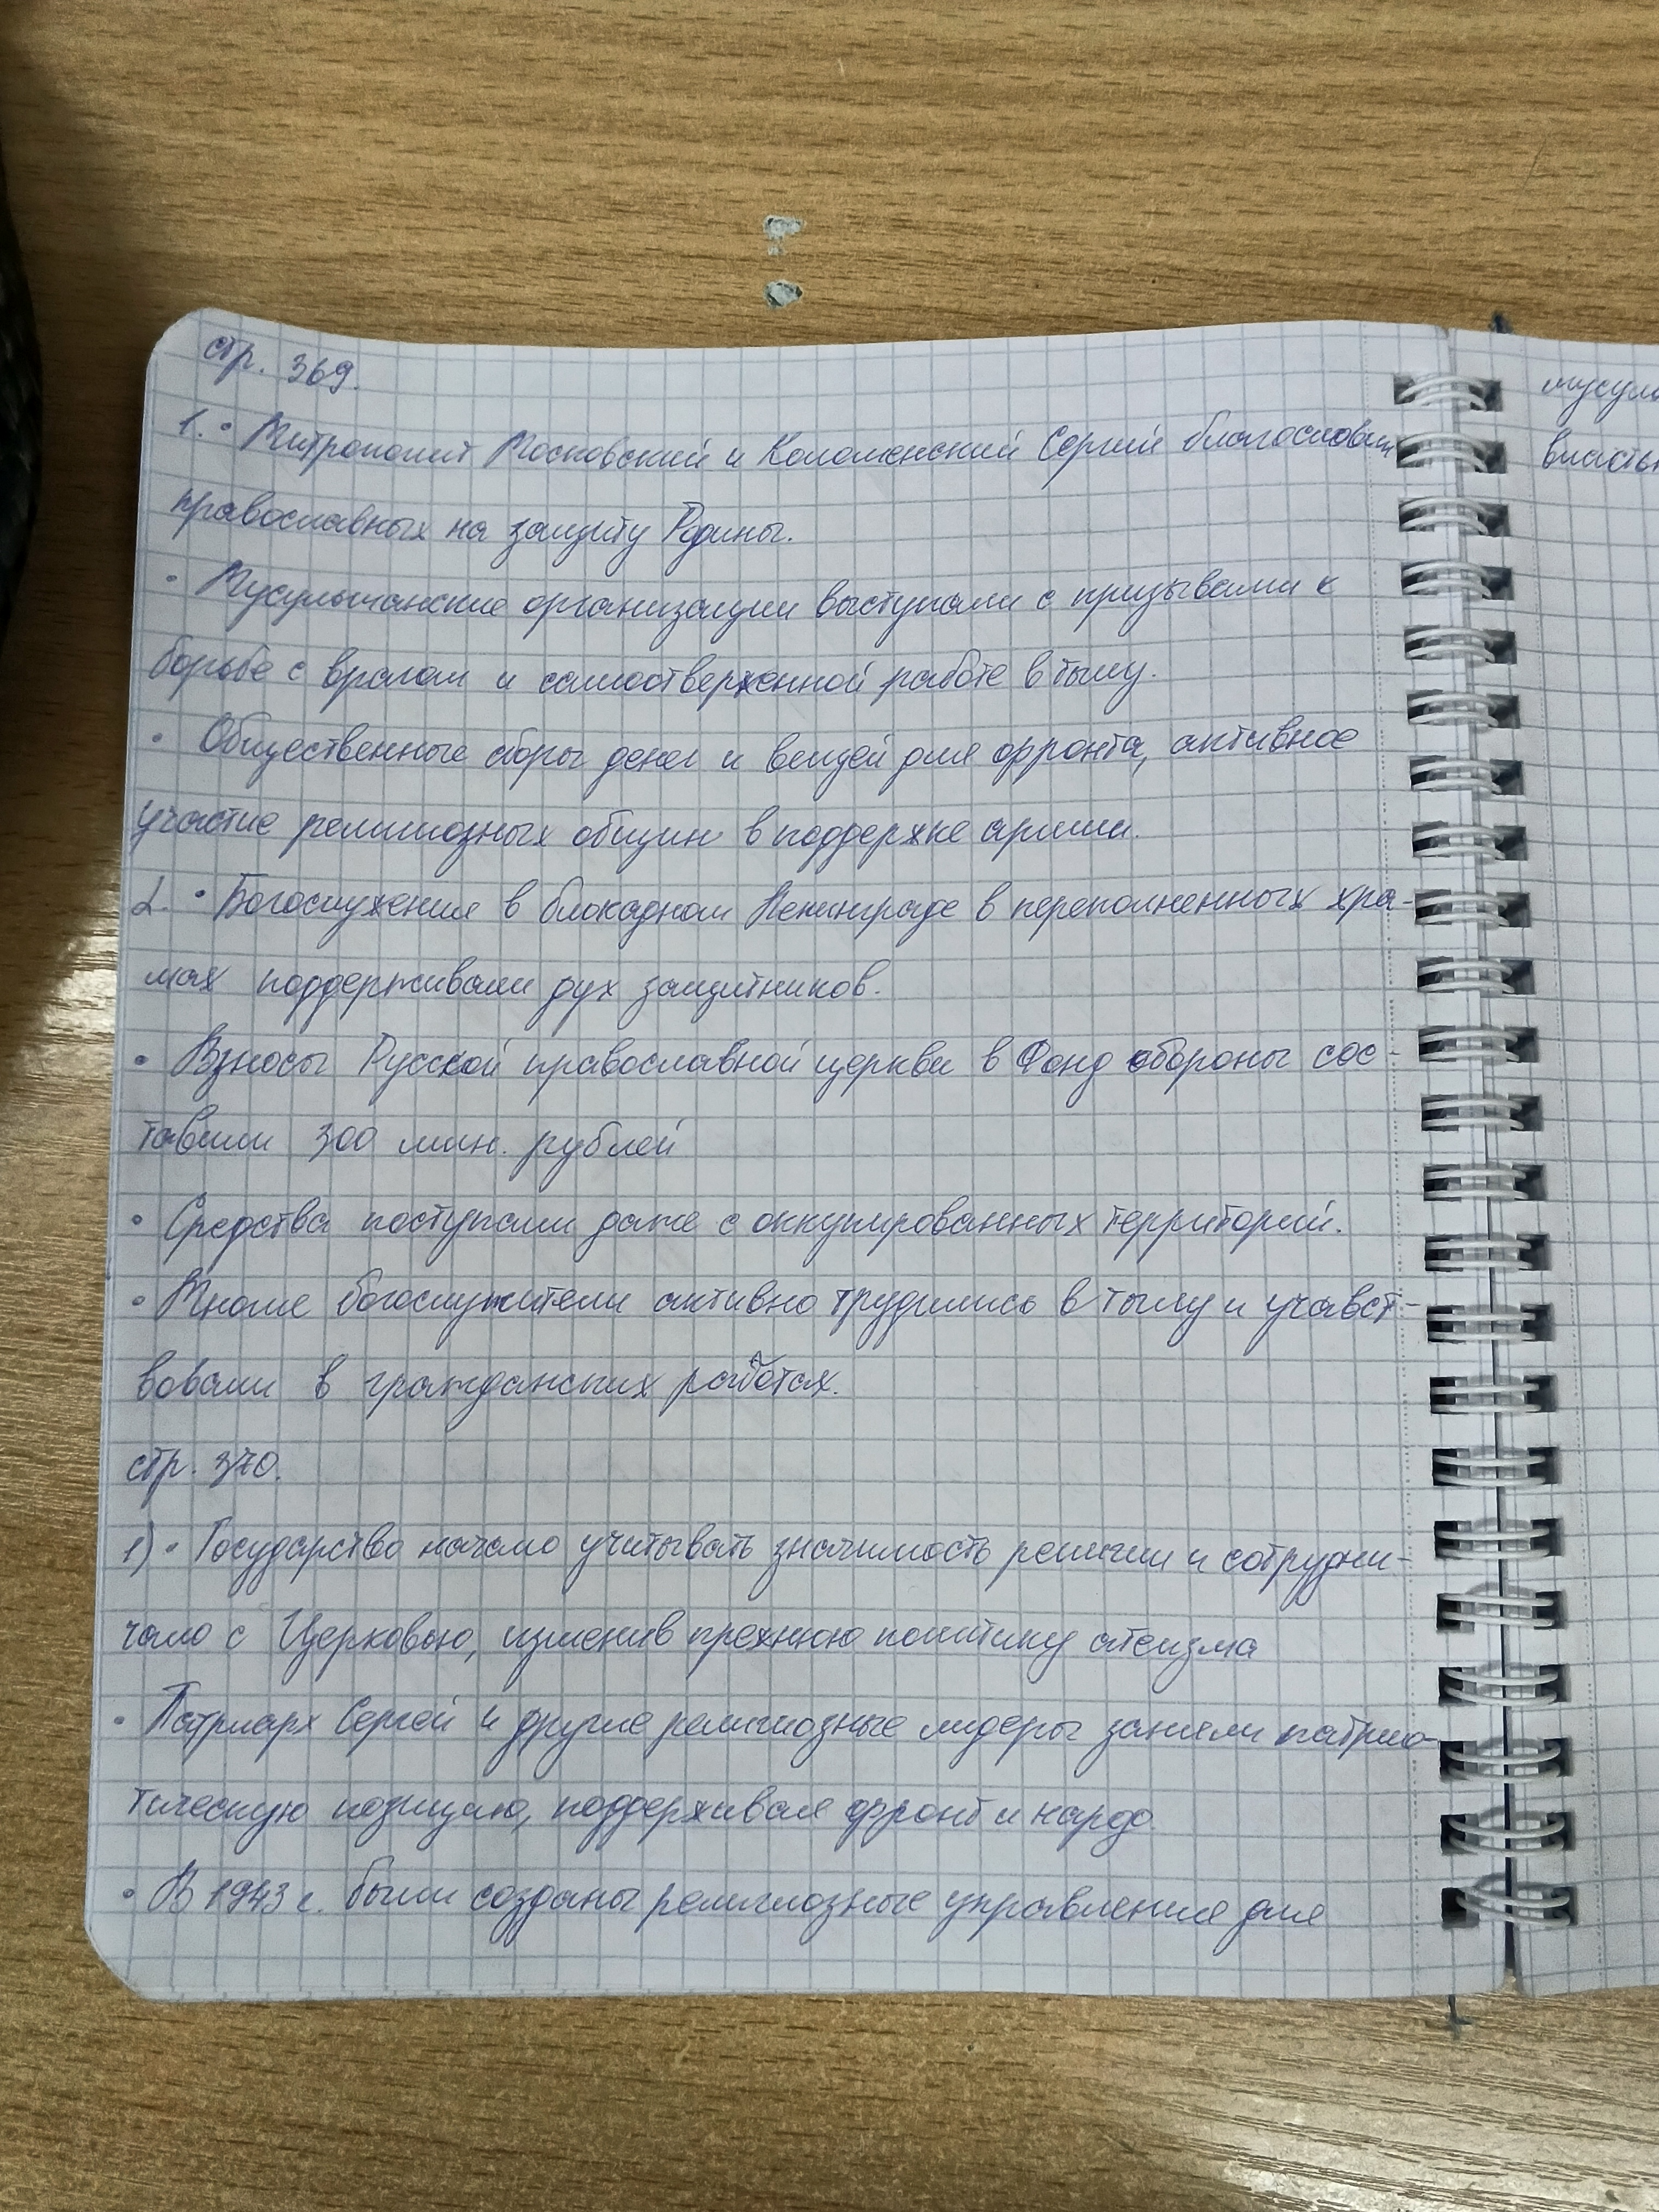 стр. 369.
1. • Митрополит Московский и Коломенский Сергий благословил
православных на защиту Родины.
• Мусульманские организации выступали с призывами к
борьбе с врагом и самоотверженной работе в тылу.
• Общественные сборы денег и вещей для фронта, активное
участие религиозных общин в поддержке армии.
2. • Богослужения в блокадном Ленинграде в переполненных хра-
мах поддерживали дух защитников.
• Взносы Русской православной церкви в Фонд обороны сос-
тавили 300 млн. рублей
• Средства поступали даже с оккупированных территорий.
• Многие богослужители активно трудились в тылу и учавст-
вовали в гражданских работах.
стр. 370.
1) • Государство начало учитывать значимость религии и сотрудни-
чало с Церковью, изменив прежнюю политику атеизма
• Патриарх Сергей и другие религиозные лидеры заняли патрио-
тическую позицию, поддерживая фронт и народ
• В 1943 г. были созданы религиозные управления для